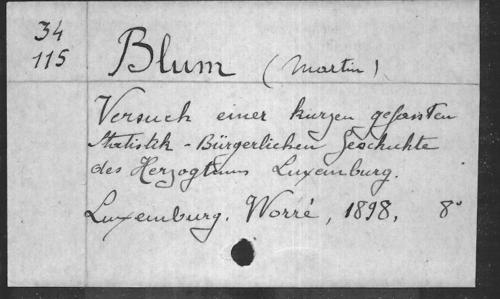 34
115
Blum (Martin)
Versuch einer kurzen gefassten
Statistik - Bürgerlichen Geschichte
des Herzogtums Luxemburg.
Luxemburg. Worré, 1898, 8°